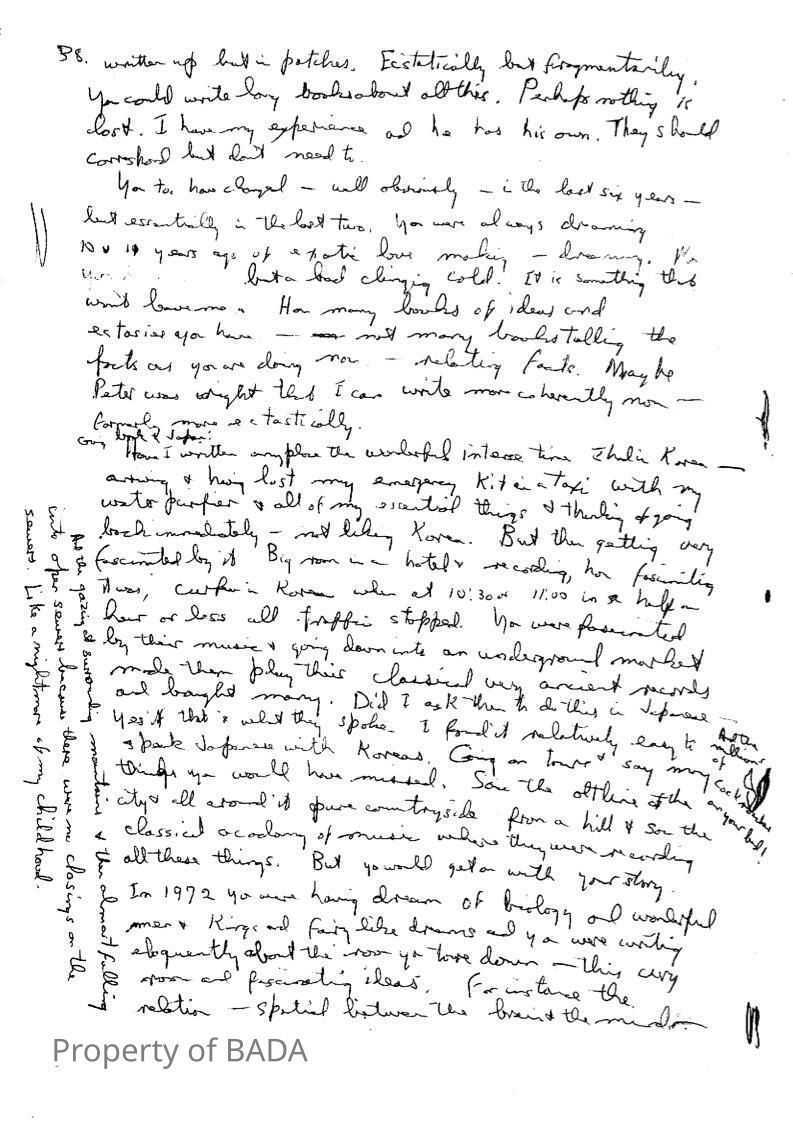 38. written up but in patches. Ecstatically but fragmentarily.
You could write long books about all this. Perhaps nothing is
lost. I have my experience and he has his own. They should
correspond but don't need to.
You too have changed – well obviously – in the last six years –
but essentially in the last two. You were always dreaming
years ago of exotic love making – dreaming.
but a bad clinging cold! It is something that
won't leave me. How many books of ideas and
ectasies you have – not many books telling the
facts as you are doing now – relating facts. Maybe
Peter was wright that I can write more coherently now –
formerly more ectastically.
Going back to Japan:
Have I written anyplace the wonderful intense time I had in Korea –
arriving & having lost my emergency kit in a taxi with my
water purfier & all of my essential things & thinking of going
back immediately – not liking Korea. But then getting very
fascinated by it Big room in a hotel & recording, how fascinating
it was, curfew in Korea when at 10:30 or 11:00 in a half an
hour or less all traffic stopped. You were fascinated
by their music & going down into an underground market
made them play their classical very ancient records
and bought many. Did I ask them to do this in Japanese –
Yes that is what they spoke. I found it relatively easy to
speak Japanese with Koreans. Going on tours & say many
things you would have missed. Saw the outline of the
city & all around it pure countryside from a hill & saw the
classical academy of music where they were recording
all these things. But you would get on with your story.
In 1972 you were having dream of biology and wonderful
men & Kings and fairy like dreams and you were writing
eloquently about the room you tore down – this very
room and fascinating ideas. For instance the
relation – spatial between the brain & the mind –
And the
millions
of
cockroaches
on your bed!
And the gazing at surrounding mountains & the almost falling
into open sewers because there were no closings on the
sewers. Like a nightmare of my childhood.
Property of BADA